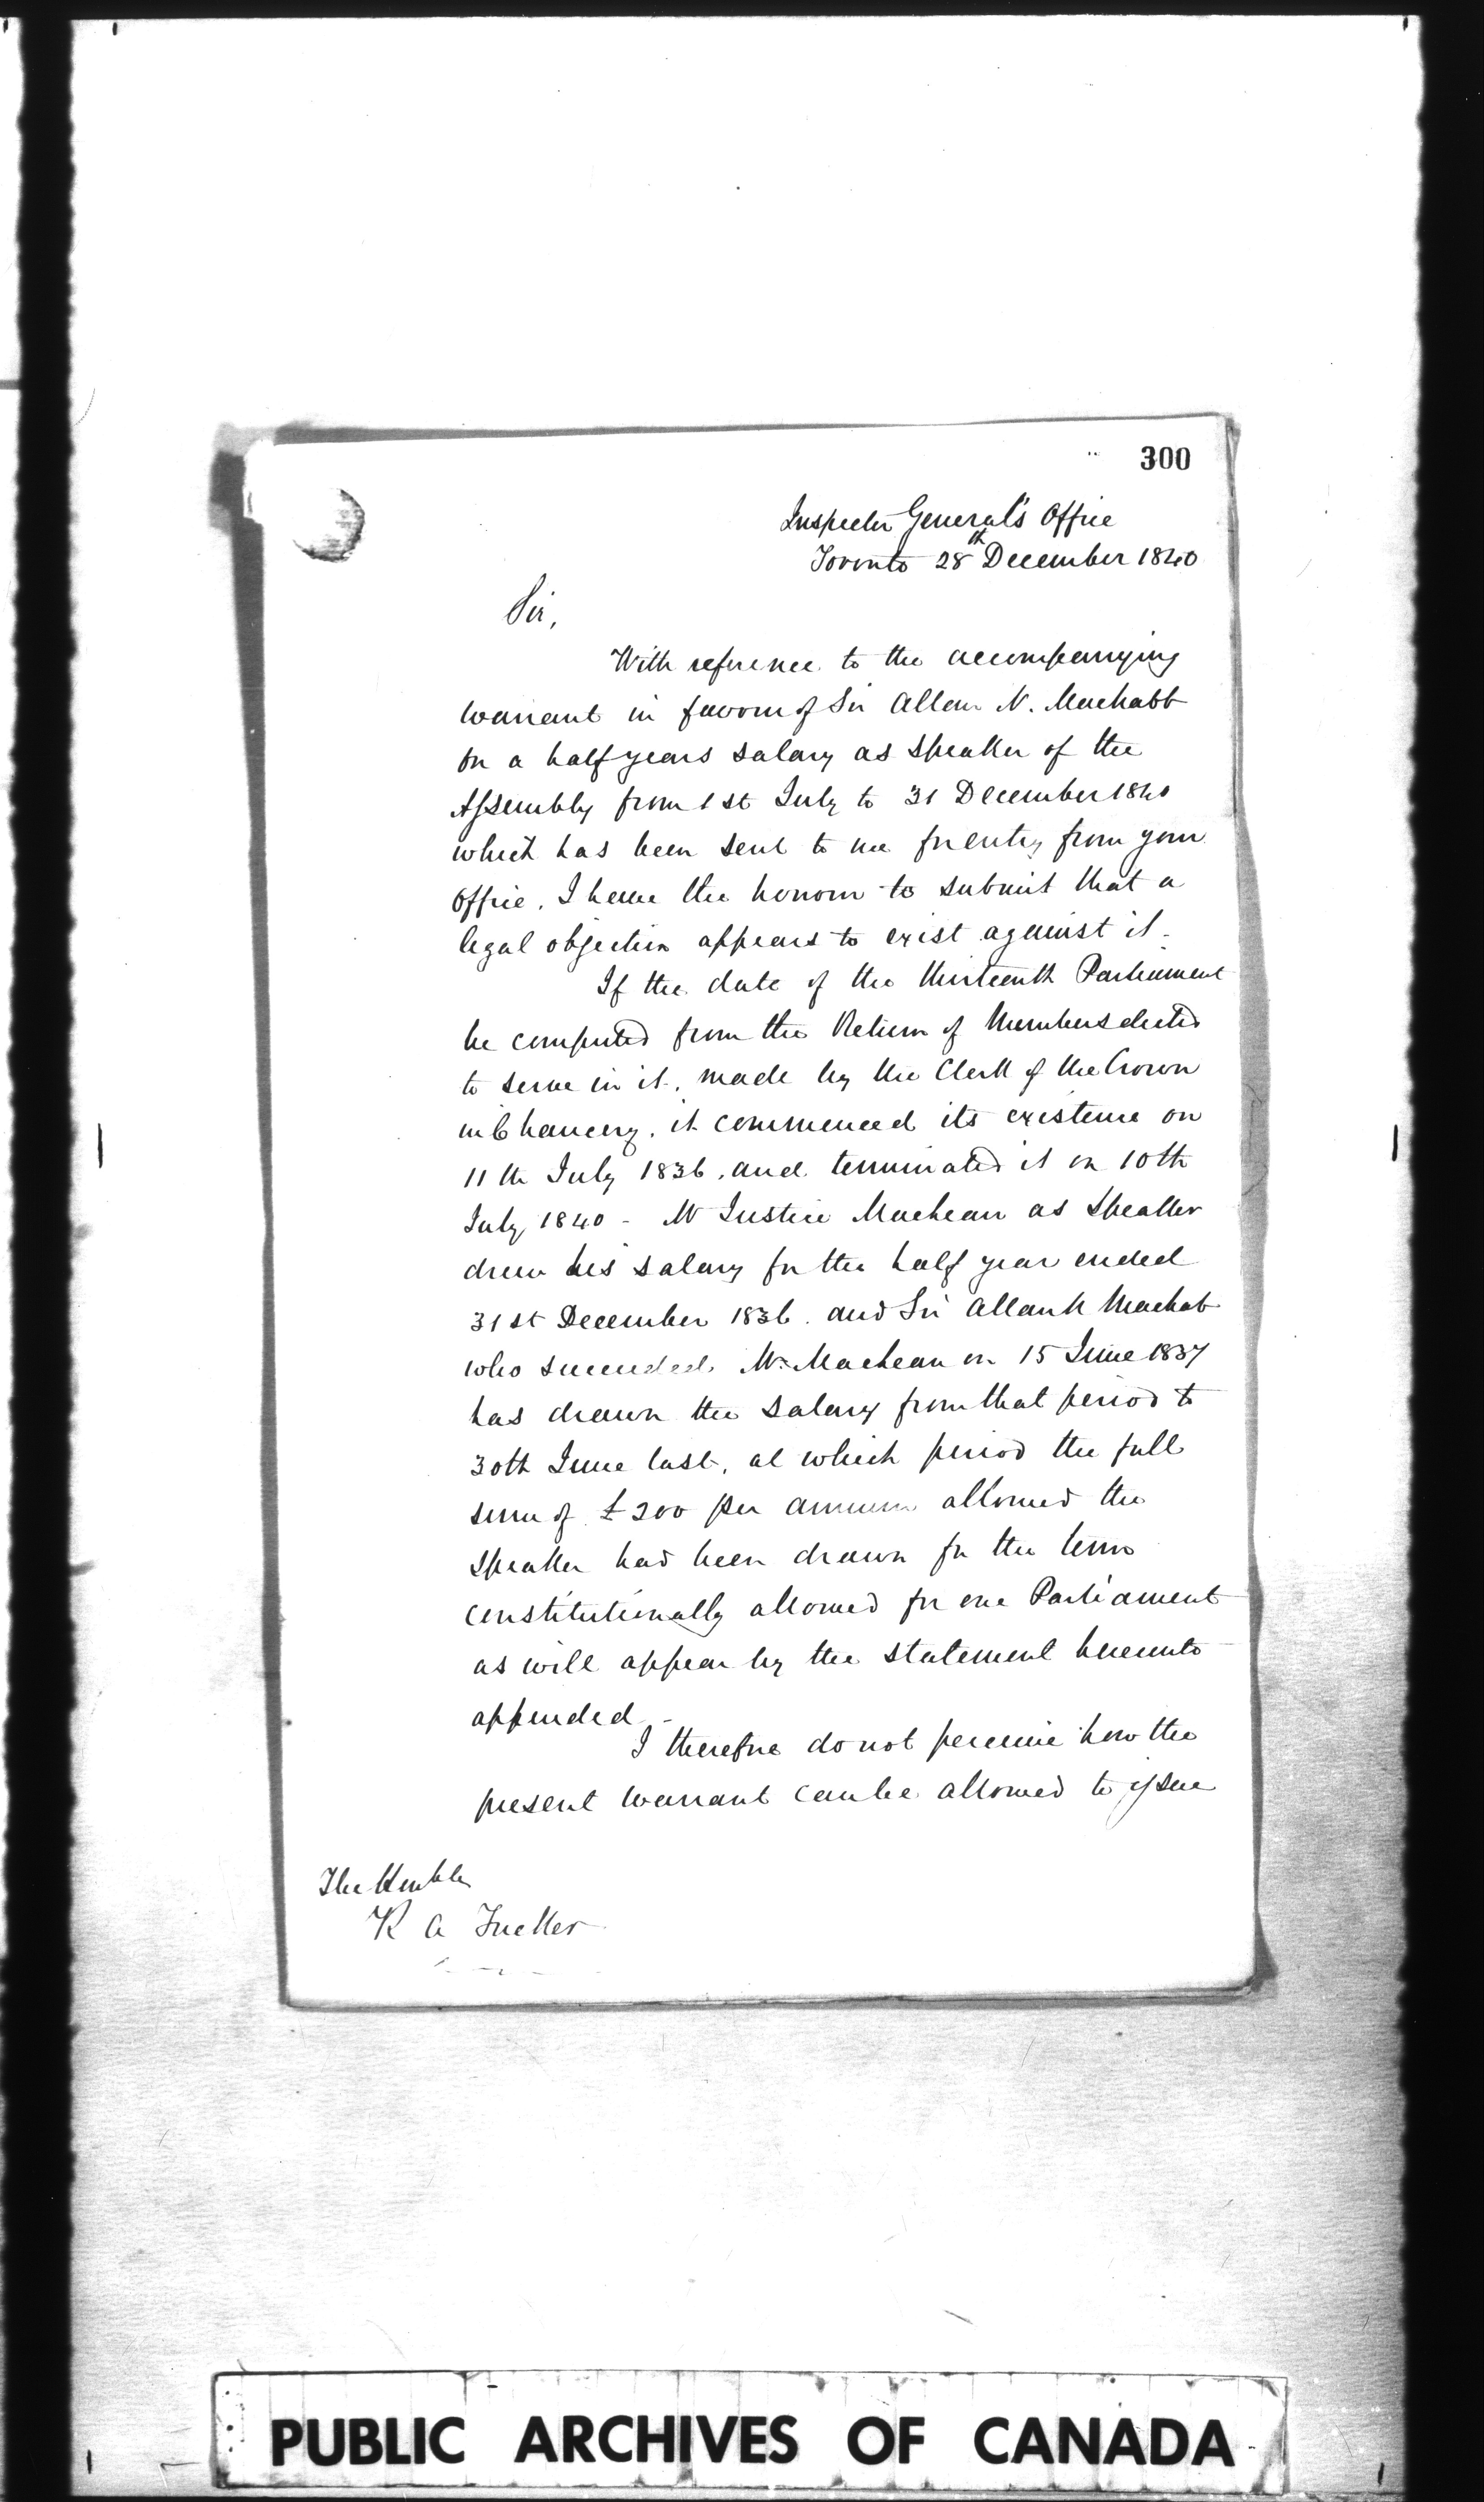 300
Inspector General's Office
Toronto 28th December 1840
Sir,
With reference to the accompanying
warrant in favour of Sir Allan N. MacNabb
for a half years salary as Speaker of the
Assembly from 1st July to 31 December 1840
which has been sent to me for entry from your
office, I have the honour to submit that a
legal objection appears to exist against it -
If the date of the thirteenth Parliament
be computed from the Return of Members elected
to serve in it, made by the Clerk of the Crown
in Chancery, it commenced its existence on
11th July 1836, and terminated it on 10th
July 1840 - Mr Justice MacLean as Speaker
drew his salary for the half year ended
31st December 1836. and Sir Allan N MacNab
who succeeded Mr MacLean on 15 June 1837
has drawn the salary from that period to
30th June last, at which period the full
sum of £200 per annum allowed the
Speaker had been drawn for the term
constitutionally allowed for one Parliament
as will appear by the statement hereunto
appended -
I therefore do not perceive how the
present warrant can be allowed to issue
The Honble
R A Tucker
PUBLIC ARCHIVES OF CANADA